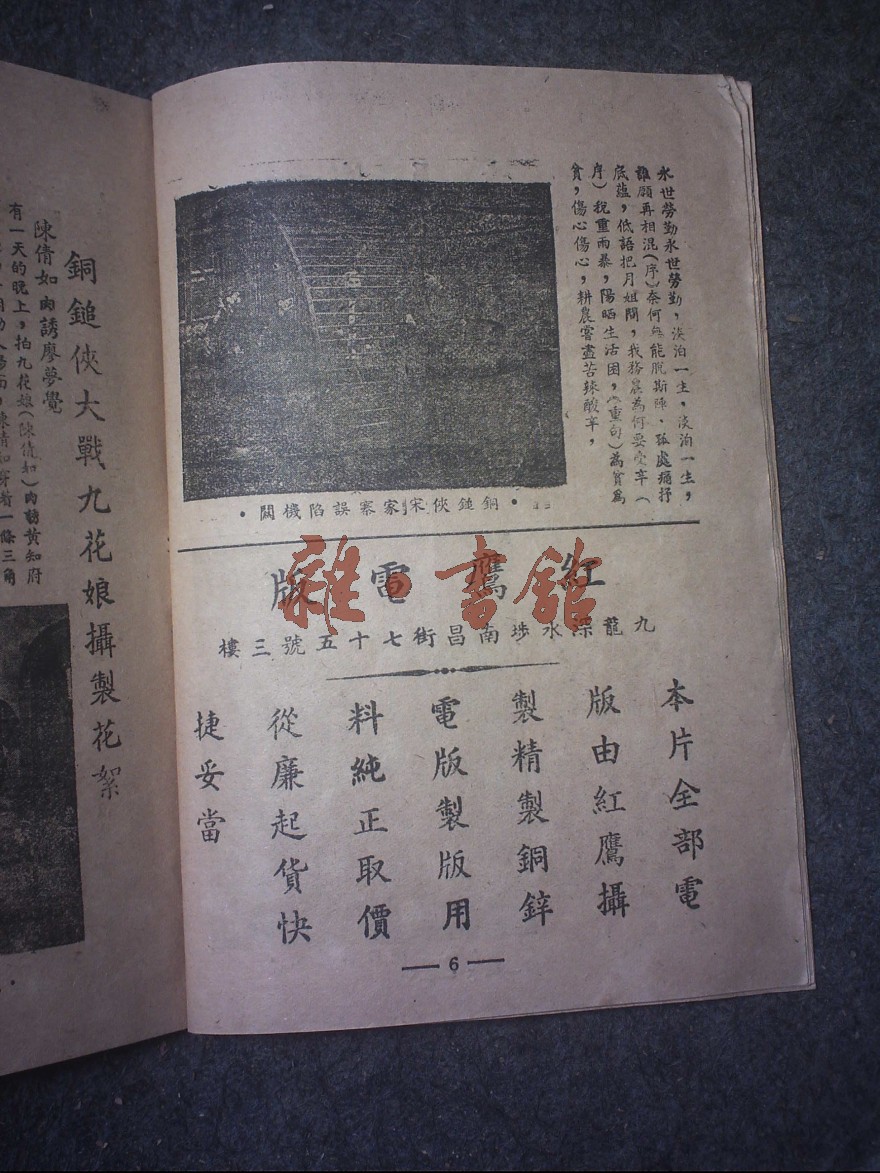 永世勞勤永世勞勤，淡泊一生，淡泊一生，
誰願再相混(序)奈何無能脫斯陣，孤處痛抒
底蘊，低語把月姐問，我務農為何要受辛(
序)稅重雨暴，陽晒生活困，(重句)為貧為
貧，傷心傷心，耕農嘗盡苦辣酸辛，
•銅鎚俠宋家寨誤陷機關•
紅鷹電版
九龍深水埗南昌街七十五號三樓
本片全部電
版由紅鷹攝
製精製銅鋅
電版製版用
料純正取價
從廉起貨快
捷妥當
— 6 —
銅鎚俠大戰九花娘攝製花絮
陳倩如肉誘廖夢覺
有一天的晚上，拍九花娘(陳倩如)肉誘黃知府
陳倩如穿着一條三角
雜·書館